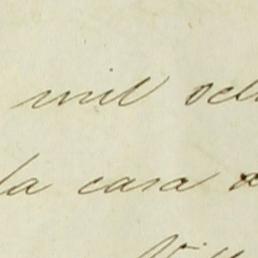 mil och
la casa